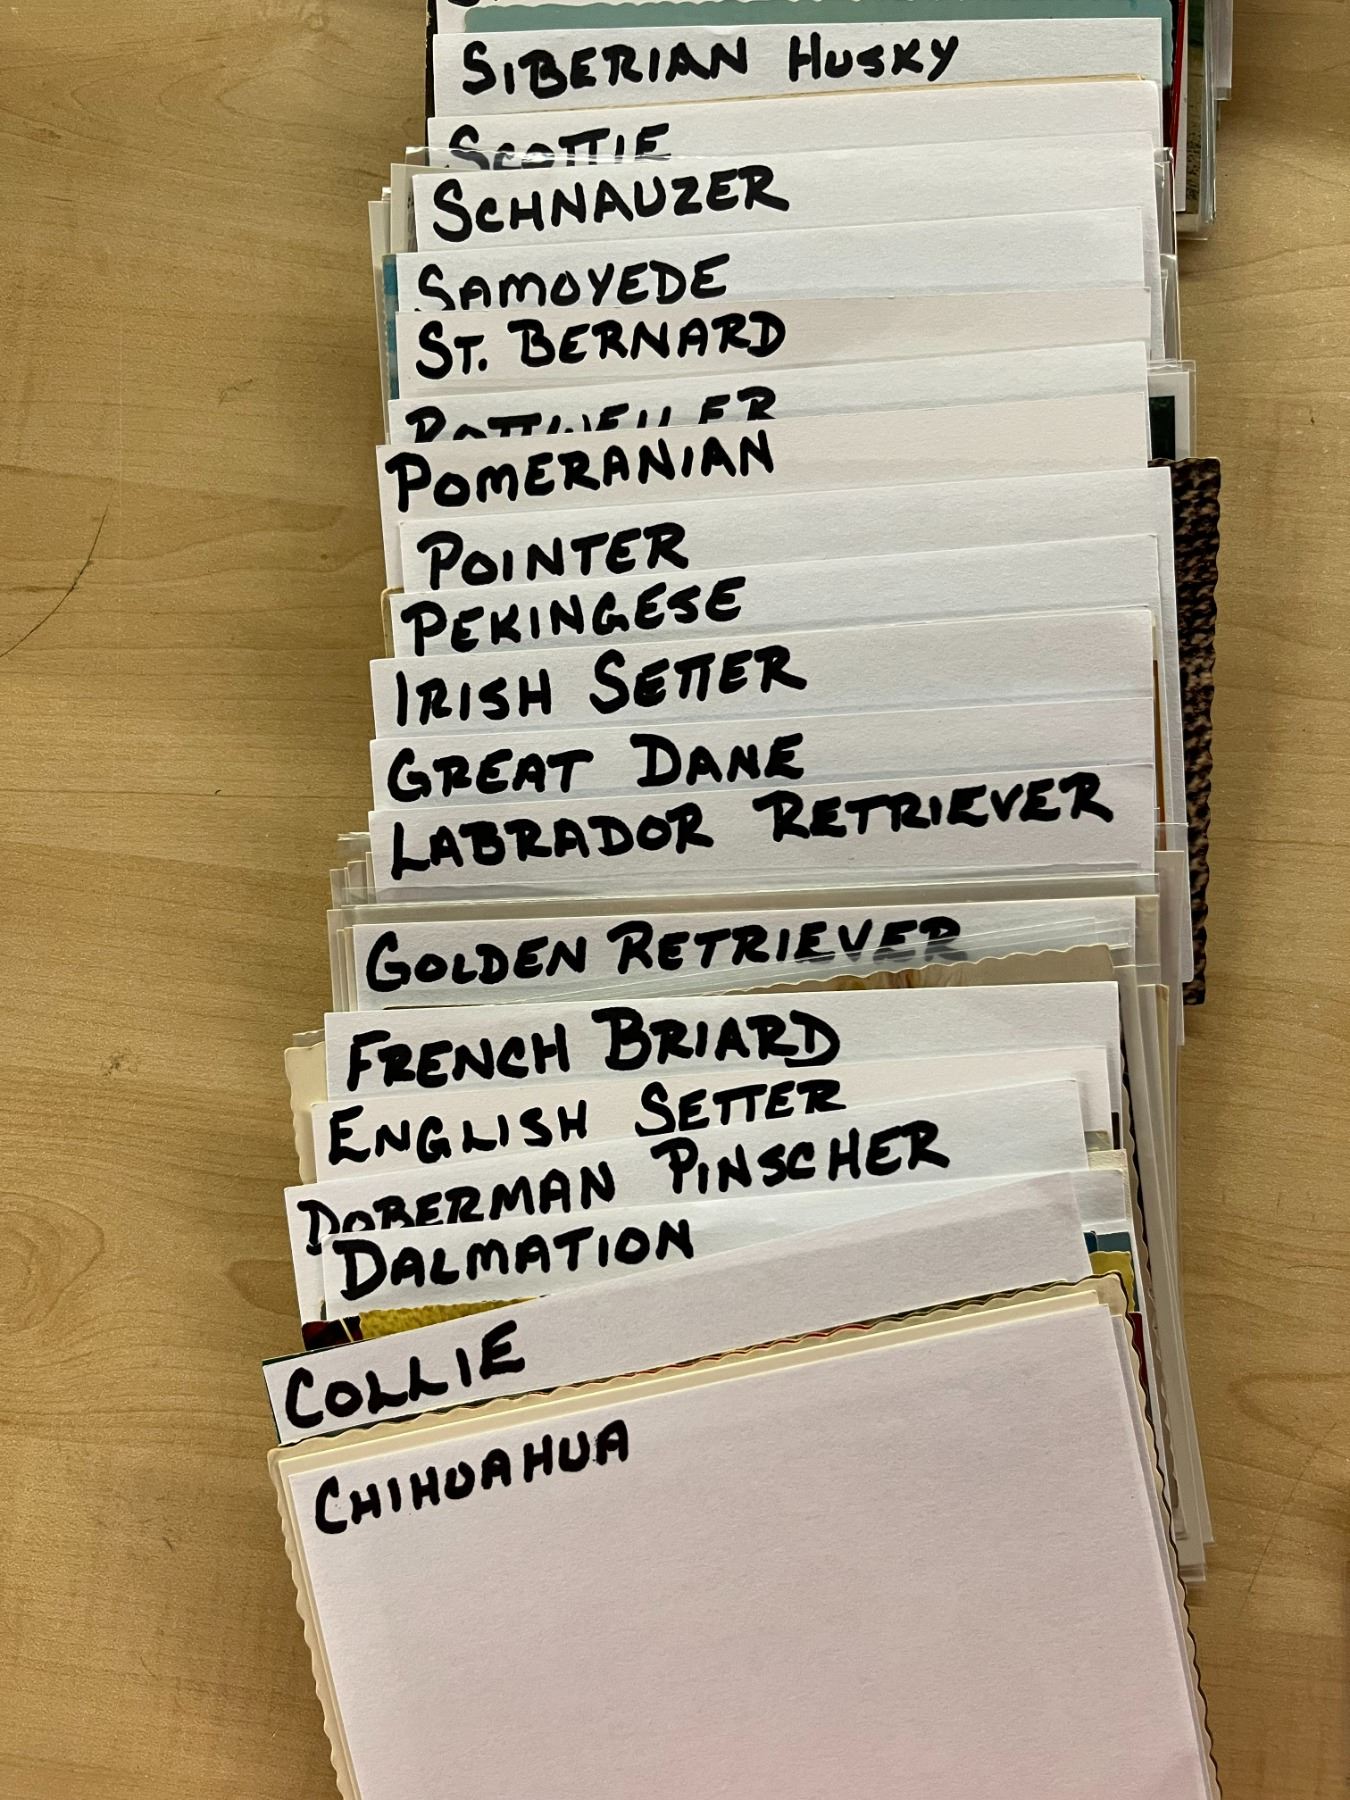 SIBERIAN HUSKY
SCOTTIE
SCHNAUZER
SAMOYEDE
ST. BERNARD
ROTTWEILLER
POMERANIAN
POINTER
PEKINGESE
IRISH SETTER
GREAT DANE
LABRADOR RETRIEVER
GOLDEN RETRIEVER
FRENCH BRIARD
ENGLISH SETTER
DOBERMAN PINSCHER
DALMATION
COLLIE
CHIHUAHUA